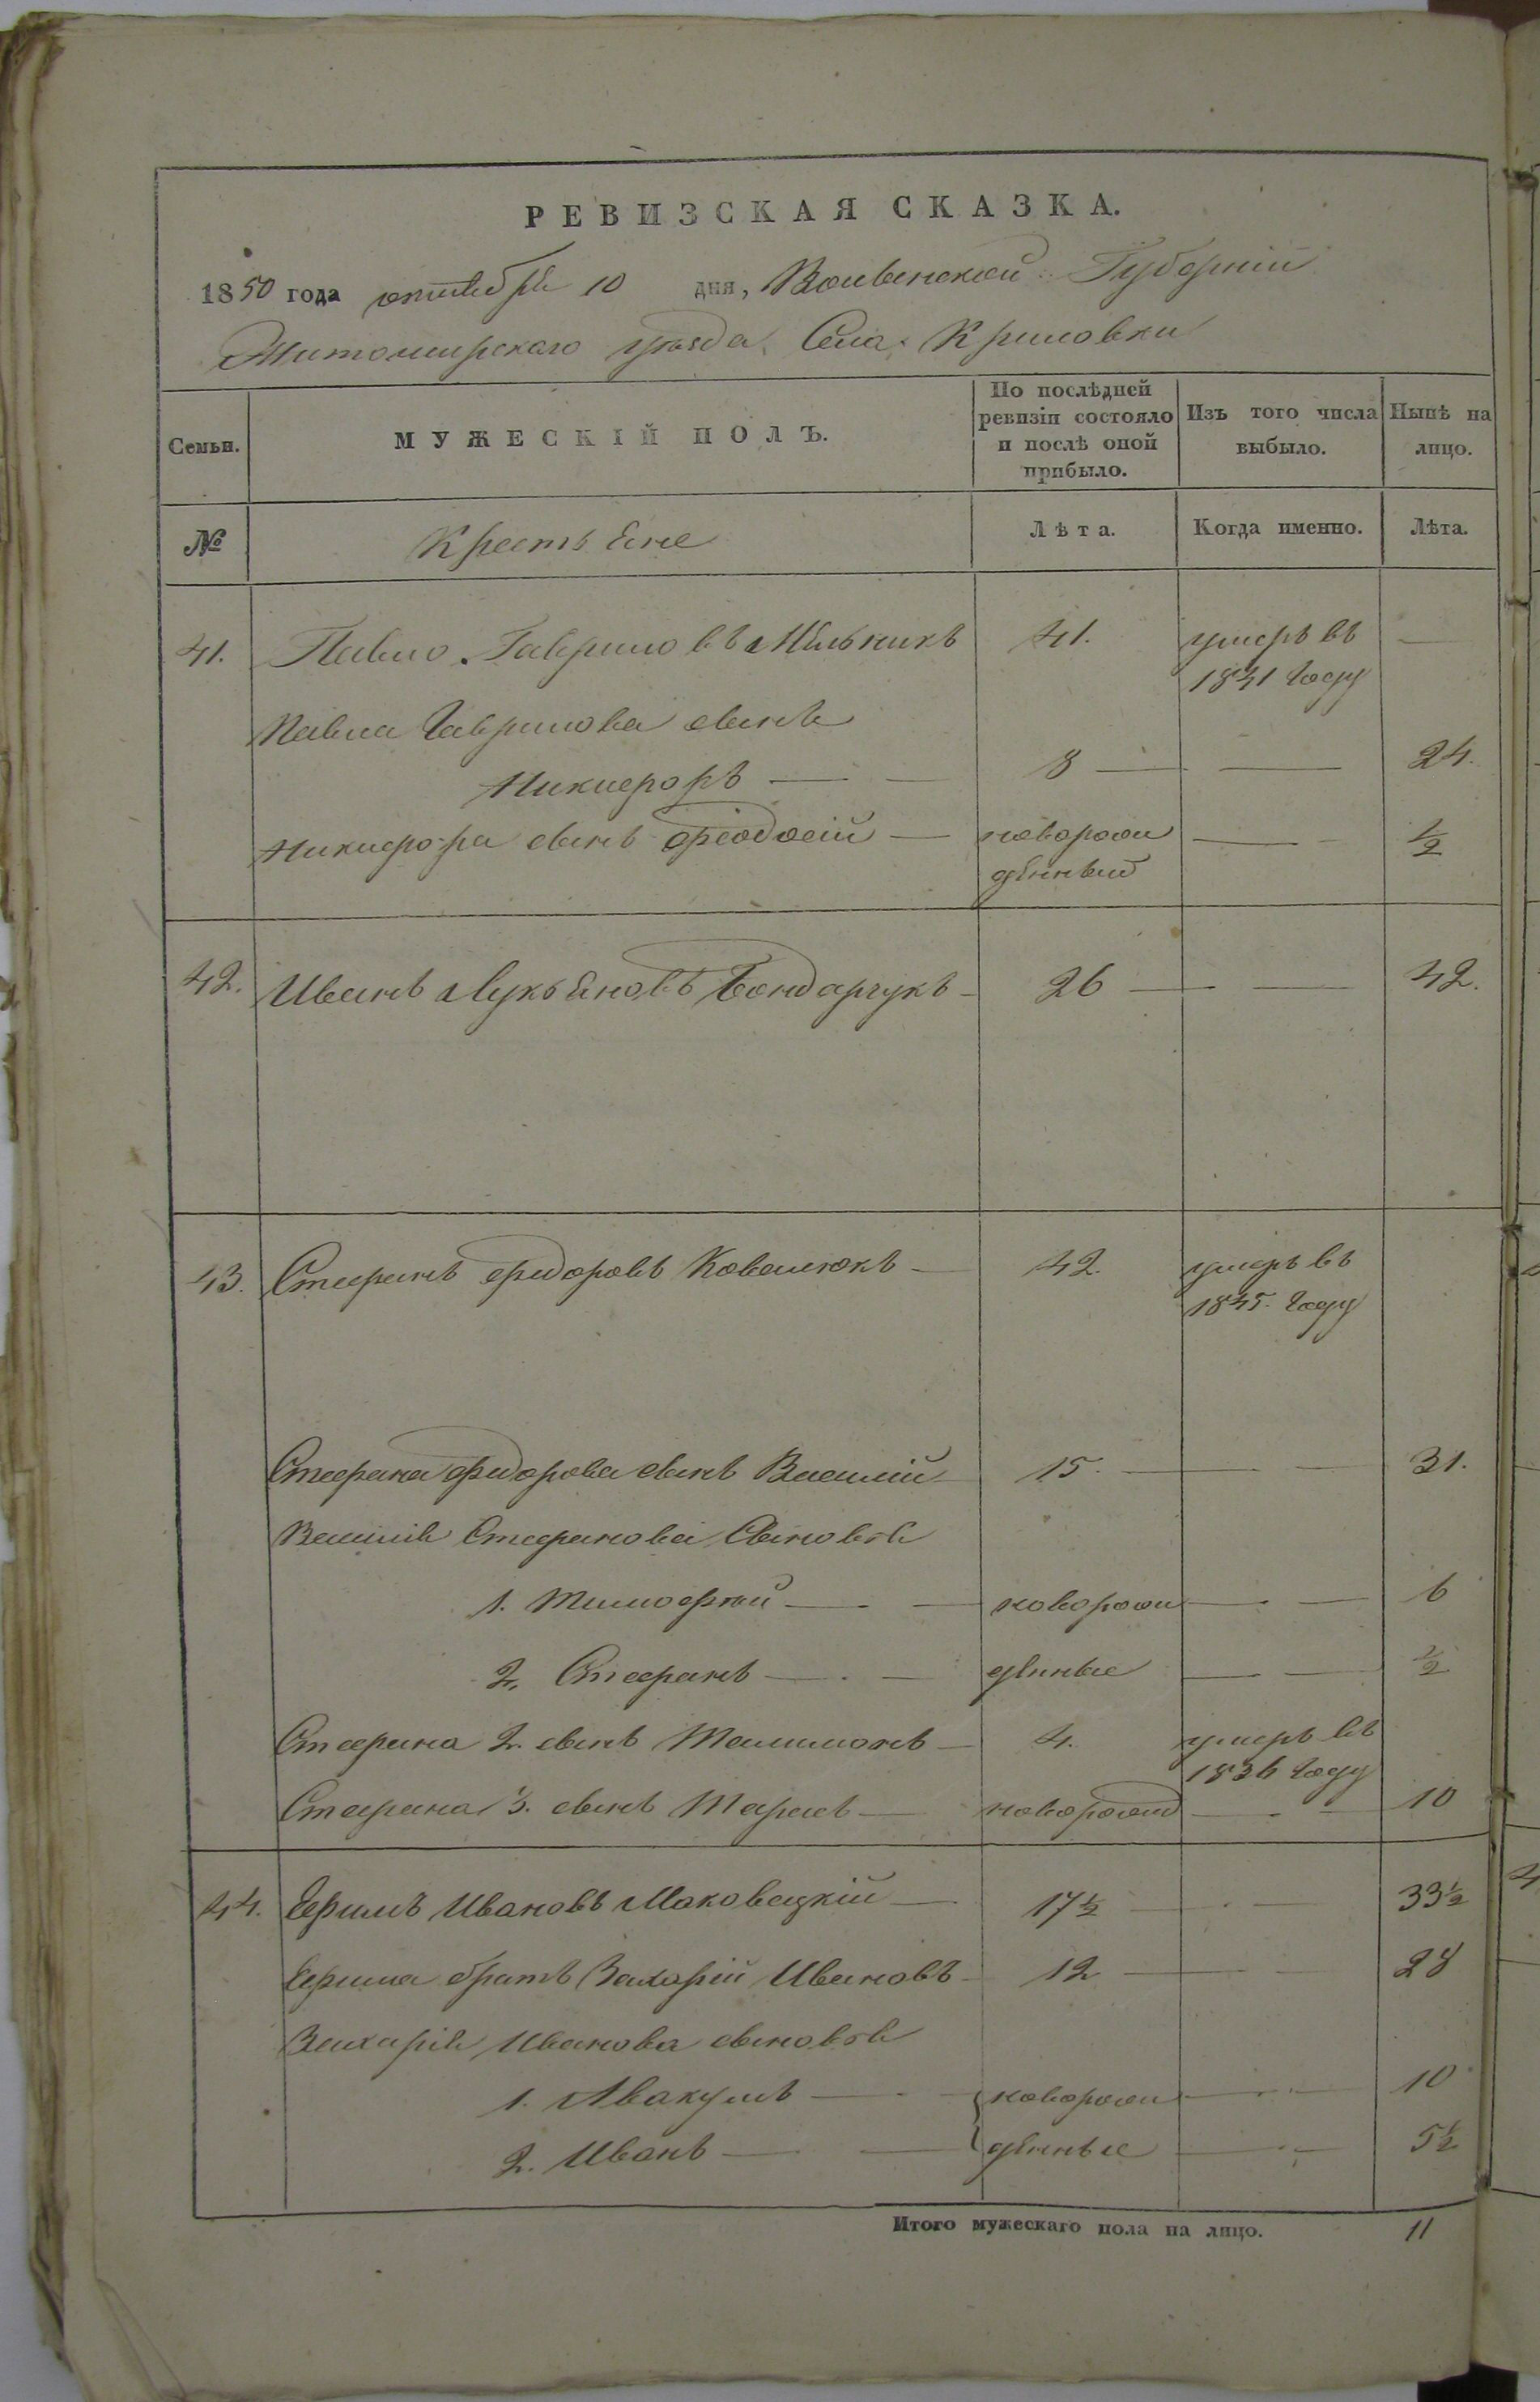 РЕВИЗСКАЯ СКАЗКА.
1850 года октября 10 дня, Волынской Губерніи
Житомирскаго уѣзда Села Криловки
Семьи.
МУЖЕСКІЙ ПОЛЪ.
По послѣдней ревизіи состояло и послѣ оной прибыло.
Изъ того числа выбыло.
Нынѣ на лицо.
№ Крестьяне Лѣта. Когда именно. Лѣта.
41. Павло Гавриловъ Мельникъ 41. умеръ въ —
1841 году
Павла Гаврилова сынъ
Никифоръ — — 8 — — 24.
Никифора сынъ Феодосій — неворож — 1/2
денный
42. Иванъ Лукьяновъ Бондарчукъ — 26 — — 42.
43. Стефанъ Фидоровъ Ковалюкъ — 42. умеръ въ
1845. году
Стефана Фидорова сынъ Василій — 15. — — 31.
Василія Стефанова Сыновья
1. Тимофтей — — новорож — — 6
2. Стефанъ — — денные — — 1/2
Стефана 2. сынъ Талимонъ — 4. умеръ въ
1836 году
Стефана 3. сынъ Тарасъ — новорожд — — 10
44. Ефимъ Ивановъ Маковецкій — 17 1/2 — — 33 1/2
Ефима братъ Захарій Ивановъ — 12 — — 28
Захарія Иванова сыновья
1. Авакумъ — новорож — — 10
2. Иванъ — — денные — — 5 1/2
Итого мужескаго пола на лицо. 11